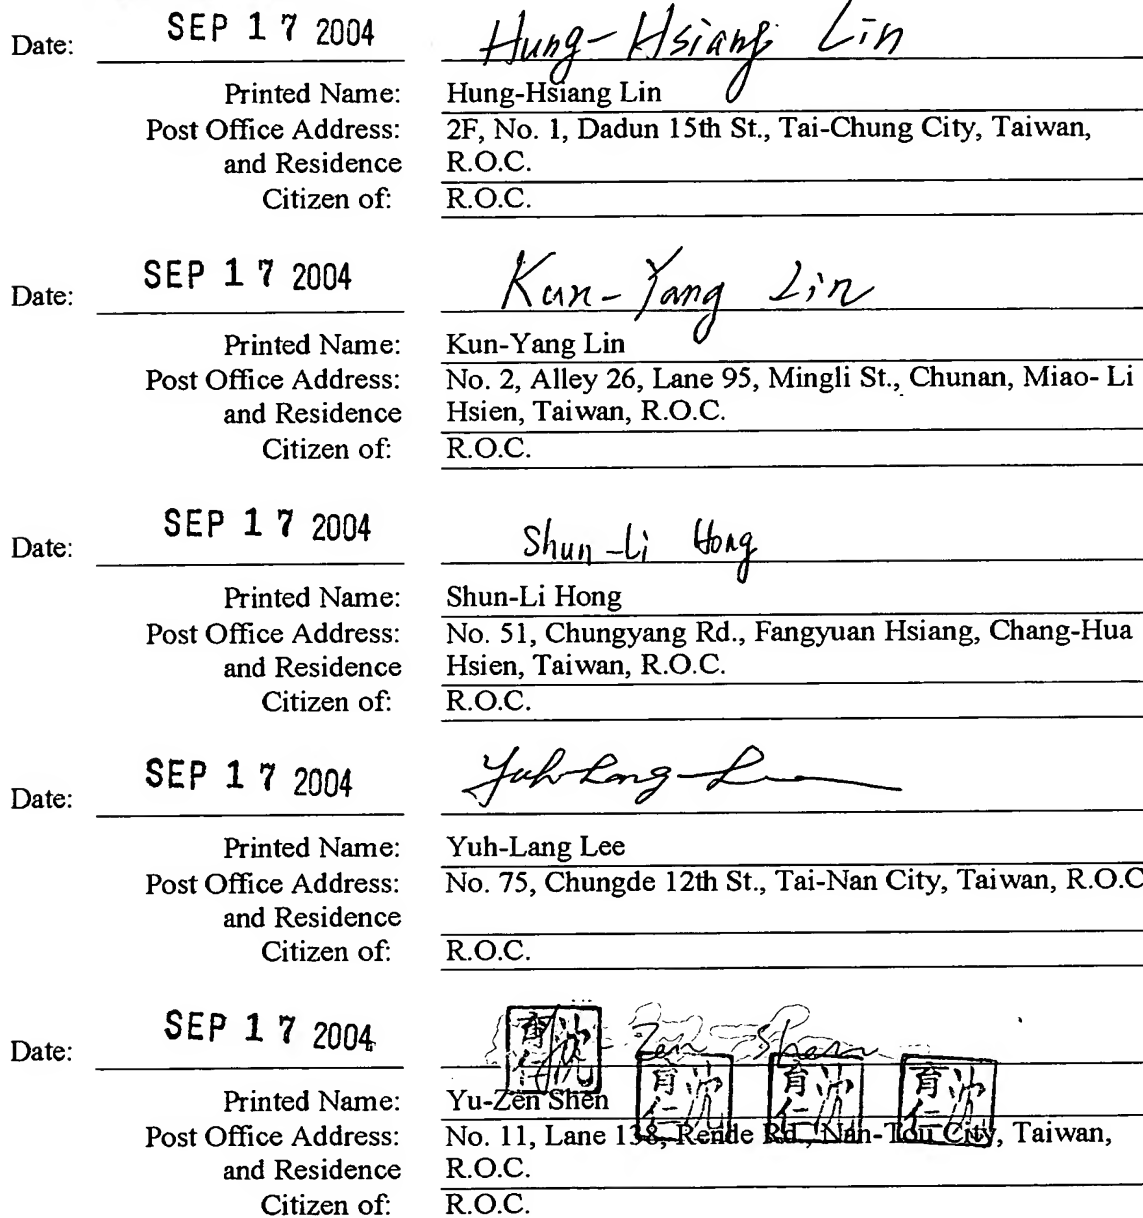 Date: SEP 17 2004 Hung-Hsiang Lin
Printed Name: Hung-Hsiang Lin
Post Office Address: 2F, No. 1, Dadun 15th St., Tai-Chung City, Taiwan,
and Residence R.O.C.
Citizen of: R.O.C.
Date: SEP 17 2004 Kun-Yang Lin
Printed Name: Kun-Yang Lin
Post Office Address: No. 2, Alley 26, Lane 95, Mingli St., Chunan, Miao- Li
and Residence Hsien, Taiwan, R.O.C.
Citizen of: R.O.C.
Date: SEP 17 2004 Shun-Li Hong
Printed Name: Shun-Li Hong
Post Office Address: No. 51, Chungyang Rd., Fangyuan Hsiang, Chang-Hua
and Residence Hsien, Taiwan, R.O.C.
Citizen of: R.O.C.
Date: SEP 17 2004 Yuh-Lang Lee
Printed Name: Yuh-Lang Lee
Post Office Address: No. 75, Chungde 12th St., Tai-Nan City, Taiwan, R.O.C
and Residence
Citizen of: R.O.C.
Date: SEP 17 2004 Yu-Zen Shen
沈育仁
沈育仁 沈育仁 沈育仁
Printed Name: Yu-Zen Shen
Post Office Address: No. 11, Lane 138, Rende Rd., Nan-Tou City, Taiwan,
and Residence R.O.C.
Citizen of: R.O.C.